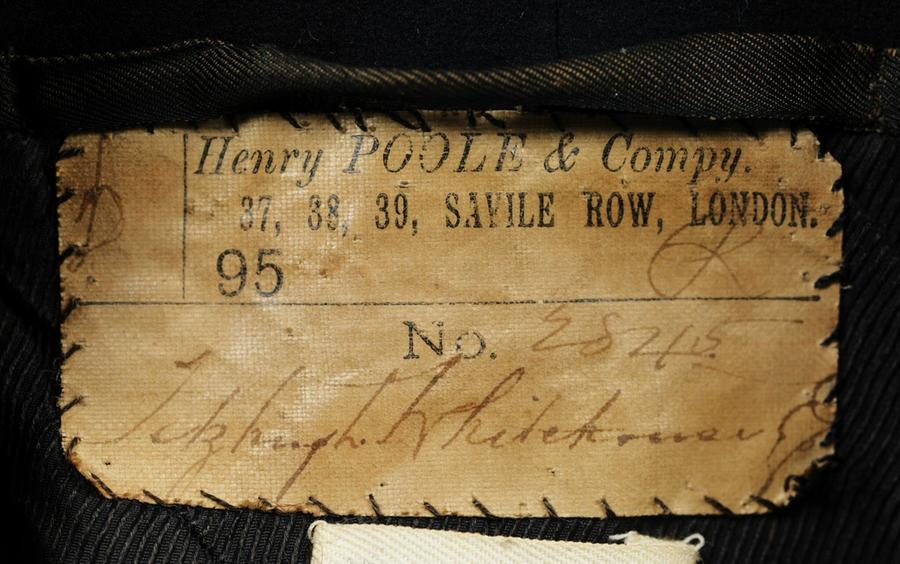 Henry POOLE & Compy.
37, 38, 39, SAVILE ROW, LONDON.
95
No. 28245
Fitzhugh Whitehouse